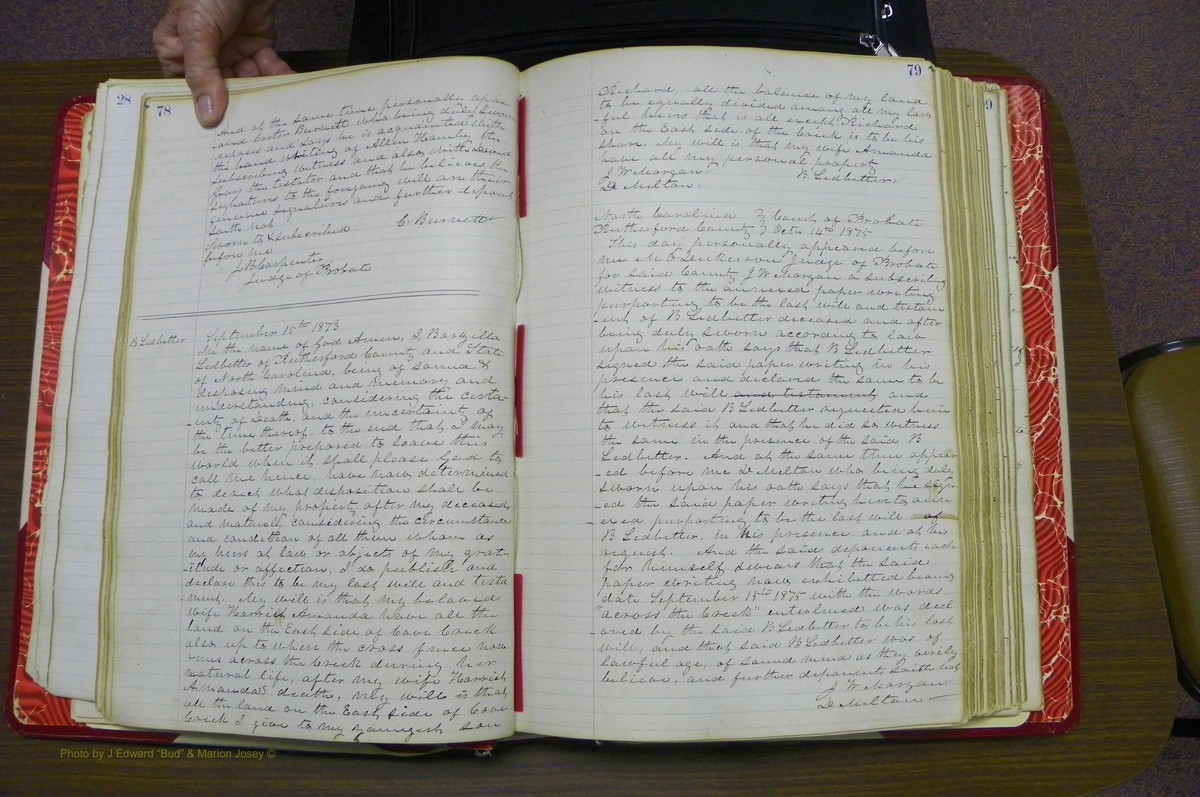 28
78
And at the same time personally appe
-ared Carter Burnett who being duly Sworn
deposes and says he is acquainted with
the hand writing of Allen Hamby the
subscribing witness and also with David
Gray the testator and that he believes the
signatures to the forgoing will are their
genuine signatures and further deponent
saith not
C. Burnett
Sworn to & subscribed
before me
J B Carpenter
Judge of Probate
B Ledbetter
September 15th 1873
In the name of God Amen, I, Barzilla
Ledbetter of Rutherford County and State
of North Carolina, being of sound &
disposing mind and memory and
understanding, considering the certa-
-inty of Death, and the uncertainty of
the time thereof, to the end that I may
be the better prepared to leave this
world when it shall please God to
call me hence, have now determined
to direct what disposition shall be
made of my property after my deceased
and maturely considering the circumstance
and condition of all them whom as
my heirs at law or objects of my grat-
-itude or affection, I do publish and
declare this to be my last will and testa
-ment. My will is that my beloved
wife Harriet Amanda have all the
land on the East side of Cove Creek
also up to where the cross fence now
-uns across the Creek during her
natural life, after my wife Harriet
Amandas death, my will is that
all the land on the East side of Cove
Creek I give to my youngest son
79
9
Richard, all the balance of my land
to be equally divided among all my law
-ful heirs that is all except Richard
on the East side of the Creek is to be his
share, My will is that my wife Amanda
have all my personal property
J W Morgan
B Ledbetter
D Melton
North Carolina } Court of Probate
Rutherford County } Octr 14th 1875
This day personally appeared before
me M O Dickerson Judge of Probate
for said County J W Morgan a subscribing
witness to the annexed paper writing
purporting to be the last will and testam
ent of B Ledbetter deceased and after
being duly sworn according to law
upon his oath says that B Ledbetter
signed the said paper writing in his
presence and declared the same to be
his last will and testament and
that the said B Ledbetter requested him
to witness it and that he did so witness
the same in the presence of the said B
Ledbetter. And at the same time appear
-ed before me D Melton who being duly
sworn upon his oath says that he sign
-ed the said paper writing hereto ann
-exed purporting to be the last will of
B Ledbetter, in his presence and at his
request. And the said deponents each
for himself swears that the said
paper writing now exhibited bearing
date September 15th 1875 with the words
"across the Creek" interlined was decl
-ared by the said B Ledbetter to be his last
will, and that said B Ledbetter was of
lawful age, of sound mind as they verily
believe, and further deponents saith not
J W Morgan
D Melton
Photo by J Edward "Bud" & Marion Josey ©